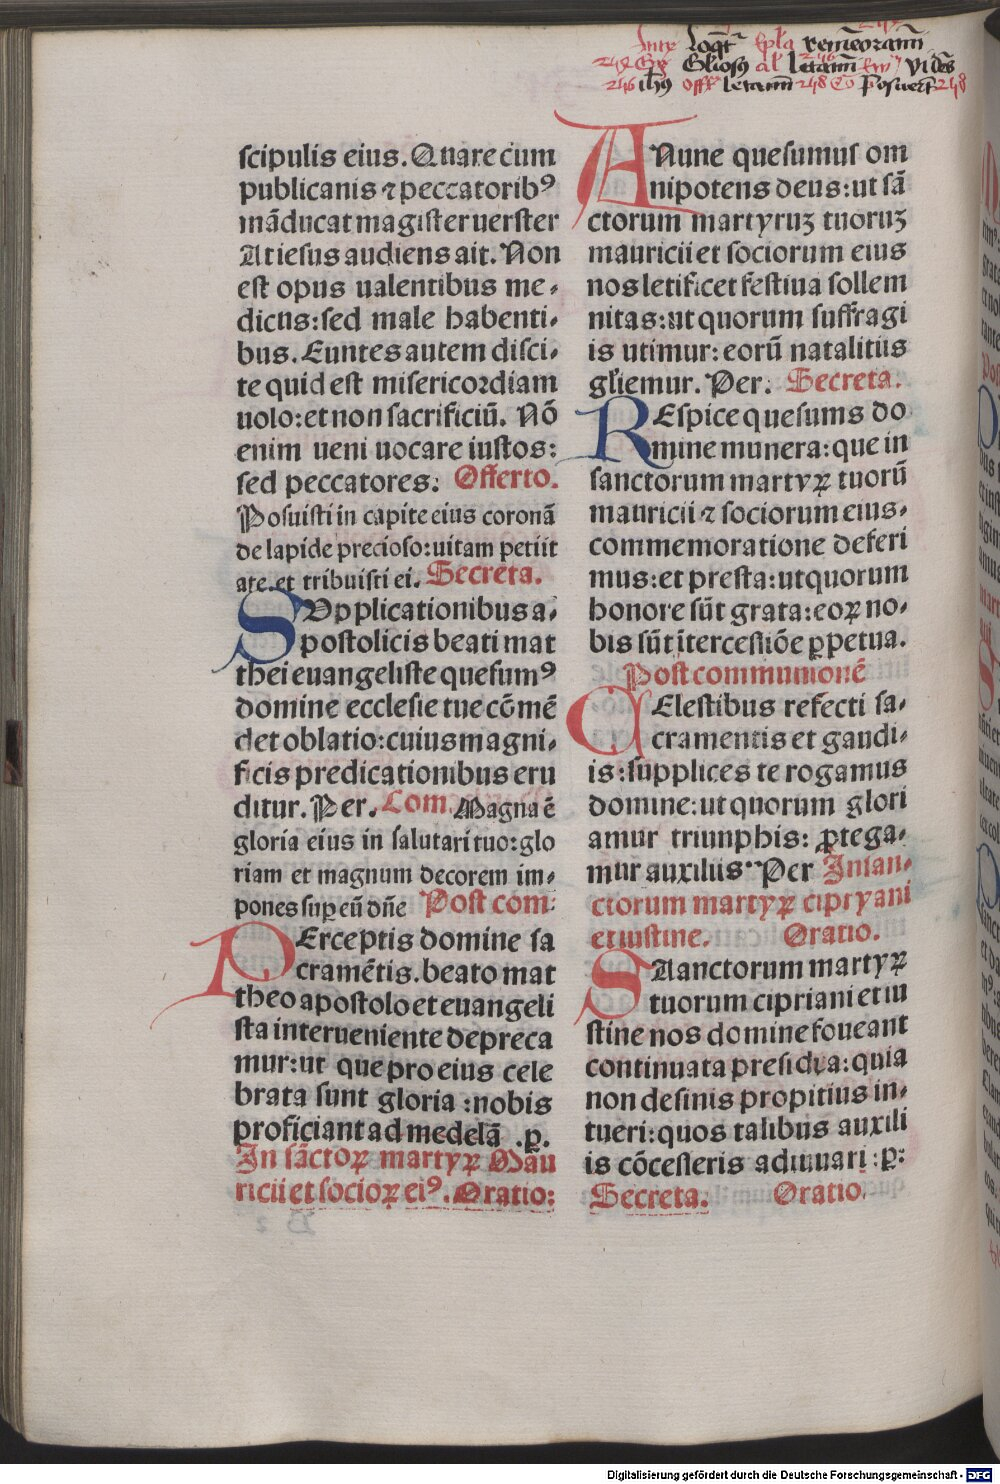 Intꝛ Loqr̄ Epl̄a
Gloſuꝯ al̓ Letam̄ Ew̄ vi des
ihūs off̄ letam̄ 248 Cō Poſuer̄t 248
ſcipulis eius. Quare cum
publicanis ⁊ peccatorib⁹
mãducat magiſter ueſter
At ieſus audiens ait. Non
eſt opus ualentibus me⸗
dicus: ſed male habenti⸗
bus. Euntes autem diſci⸗
te quid eſt miſericordiam
uolo: et non ſacrificiũ. Nõ
enim ueni uocare iuſtos:
ſed peccatores: Offerto.
Poſuiſti in capite eius coronã
de lapide precioſo: uitam petiit
a te. et tribuiſti ei. Secreta.
SVpplicationibus a⸗
poſtolicis beati mat
thei euangeliſte queſum⁹
domine eccleſie tue cõmẽ
det oblatio: cuius magni⸗
ficis predicationibus eru
ditur. Per. Com. Magna ẽ
gloria eius in ſalutari tuo: glo
riam et magnum decorem im⸗
pones ſuꝑ eũ dñe Poſt com:
PErceptis domine ſa
cramẽtis. beato mat
theo apoſtolo et euangeli
ſta interueniente depreca
mur: ut que pro eius cele
brata ſunt gloria: nobis
proficiant ad medelã .ꝑ.
In ſãctoꝝ martyꝝ Mau
ricii et ſocioꝝ ei⁹. Oratio:
ANnue queſumuſ om
nipotens deus: ut ſã
ctorum martyruꝫ tuoruꝫ
mauricii et ſociorum eius
nos letificet feſtiua ſollem
nitas: ut quorum ſuffragi
is utimur: eorũ natalitiis
gl̄iemur. Per. Secreta.
REſpice queſums do
mine munera: que in
ſanctorum martyꝝ tuorũ
mauricii ⁊ ſociorum eius⸗
commemoratione deferi
mus: et preſta: ut quorum
honore ſũt grata: eoꝝ no⸗
bis ſũt ĩterceſſiõe ꝑpetua.
Poſt communionẽ
CEleſtibus refecti ſa⸗
cramentis et gaudi⸗
is: ſupplices te rogamus
domine: ut quorum glori
amur triumphis: ꝓtega⸗
mur auxiliis. Per In ſan⸗
ctorum martyꝝ cipryani
et iuſtine. Oratio.
SAanctorum martyꝝ
tuorum cipriani et iu
ſtine nos domine foueant
continuata preſidya: quia
non deſinis propitius in⸗
tueri: quos talibus auxili
is cõceſſeris adiuuari: ꝑ:
Secreta. Oratio.
Digitalisierung gefördert durch die Deutsche Forschungsgemeinschaft - DFG